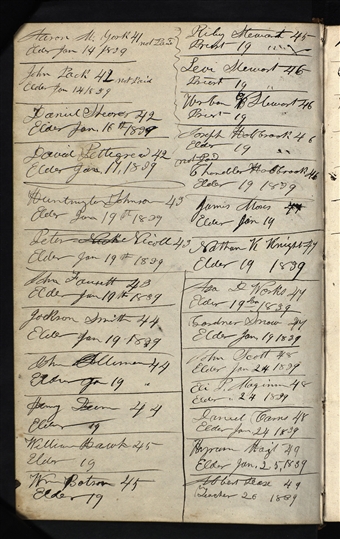 Aaron M. York 41
Elder Jan 14 1839 not Paid
John Pack 42 not Paid
Elder Jan 14 1839
Daniel Shearer 42
Elder Jan. 16th 1839
David Pettegrew 42
Elder Jan. 17, 1839
Huntington Johnson 43
Elder Jan 19th 1839
Peter Nicoll 43
Elder Jan 19th 1839
John Fausett 43
Elder Jan 19th 1839
Jackson Smith 44
Elder Jan 19 1839
John 44
Elder Jan 19 "
44
Elder 19
William Hawk 45
Elder 19
Wm Botson 45
Elder 19
Riley Stewart 45
Priest 19 "
Levi Stewart 46
Priest 19 "
Stewart 46
Priest 19 "
Joseph Holbrook 46
Elder 19
not Pd
Chandler Holbrook 46
Elder 19 1839
James Moses 47
Elder Jan 19
Nathan K Knight 47
Elder 19 1839
Asa D Works 47
Elder 19 1839
Gardner Snow 47
Elder Jan 19 1839
John Scott 48
Elder Jan 24 1839
Eli T. Maginn 48
Elder " 24 1839
Daniel Carns 48
Elder Jan 24 1839
Hyrum Hoyt 49
Elder Jan. 25, 1839
49
Teacher 26 1839